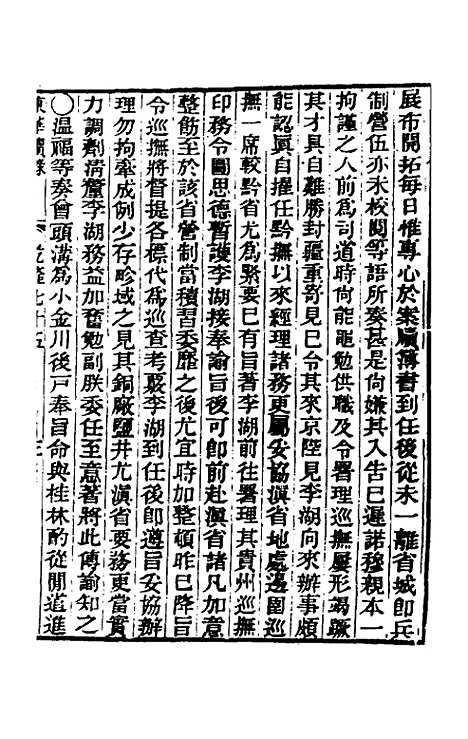 展布開拓每日惟專心於案牘簿書到任後從未一離省城卽兵
制營伍亦未校閱等語所奏甚是尙嫌其入告已遲諾穆親本一
拘謹之人前爲司道時尙能黽勉供職及令署理巡撫屢形竭蹶
其才具自難勝封疆重寄見已令其來京陛見李湖向來辦事頗
能認眞自擢任黔撫以來經理諸務更屬妥協滇省地處邊圉巡
撫一席較黔省尤爲緊要已有旨著李湖前往署理其貴州巡撫
印務令圖思德暫護李湖接奉諭旨後可卽前赴滇省諸凡加意
整飭至於該省營制當積習委靡之後尤宜時加整頓昨已降旨
令巡撫將督提各標代爲巡查考覈李湖到任後卽遵旨妥協辦
理勿拘牽成例少存畛域之見其銅廠鹽井尤滇省要務更當實
力調劑淸釐李湖務益加奮勉副朕委任至意著將此傳諭知之
〇溫福等奏曾頭溝爲小金川後戶奉旨命與桂林酌從間道進
東華續錄 乾隆七十五